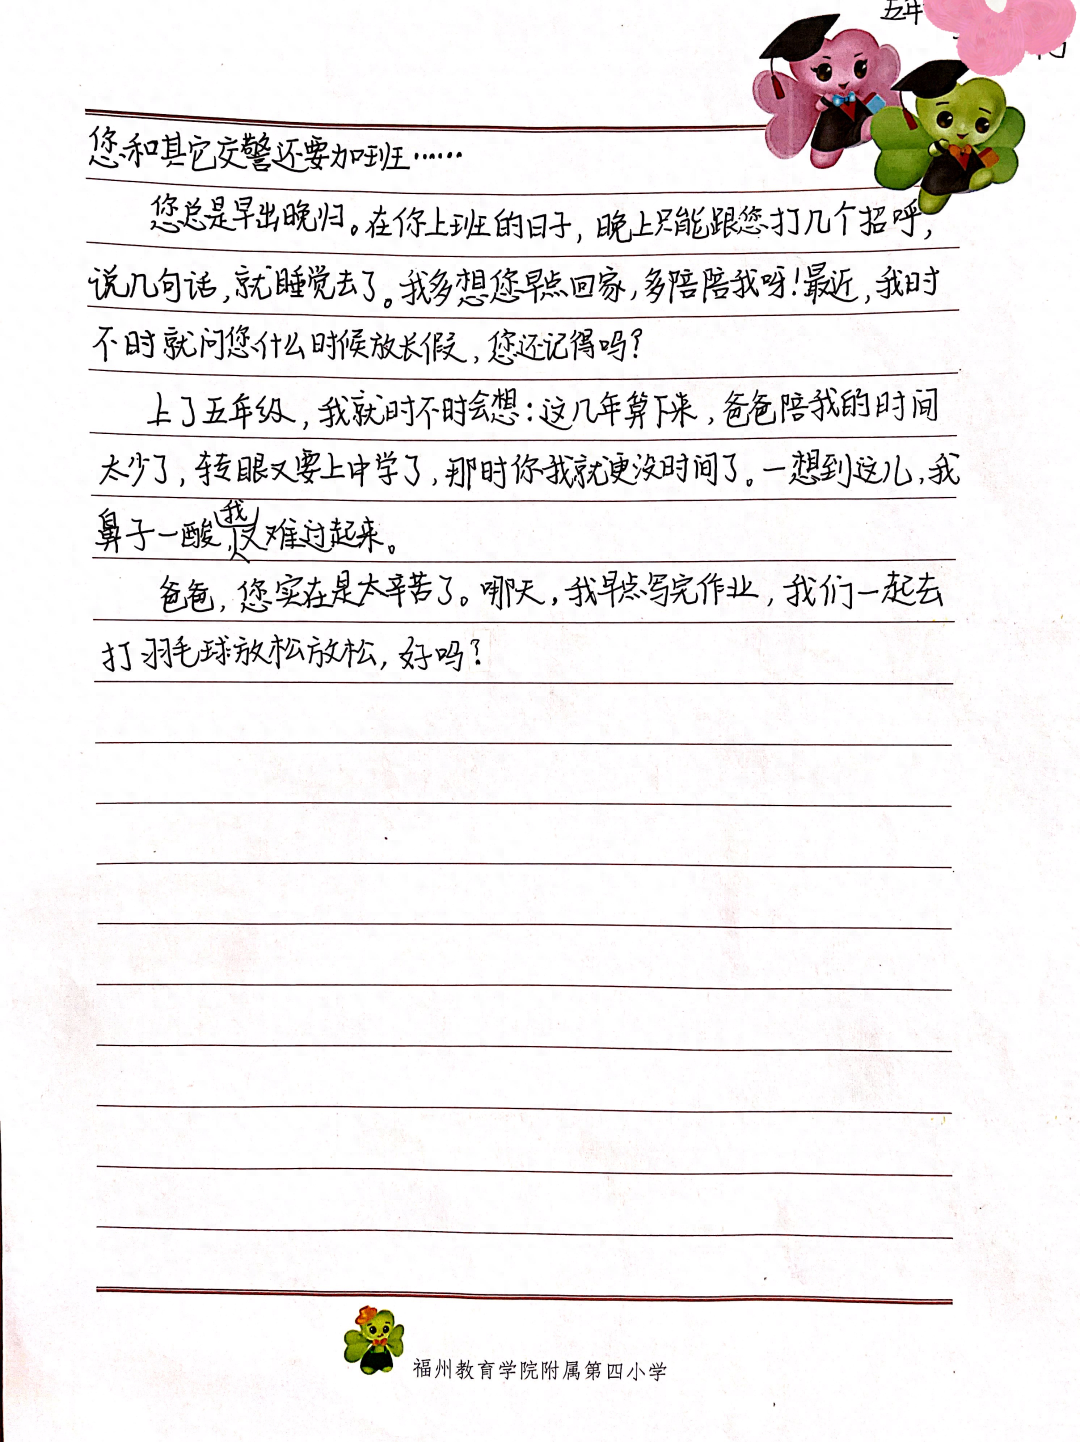 五年
您和其它交警还要加班……
您总是早出晚归。在你上班的日子，晚上只能跟您打几个招呼，
说几句话，就睡觉去了。我多想您早点回家，多陪陪我呀！最近，我时
不时就问您什么时候放长假，您还记得吗？
上了五年级，我就时不时会想：这几年算下来，爸爸陪我的时间
太少了，转眼又要上中学了，那时你我就更没时间了。一想到这儿，我
鼻子一酸，我又难过起来。
爸爸，您实在是太辛苦了。哪天，我早点写完作业，我们一起去
打羽毛球放松放松，好吗？
福州教育学院附属第四小学